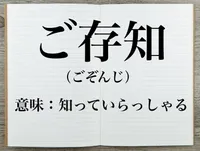 ご存知
（ごぞんじ）
意味：知っていらっしゃる